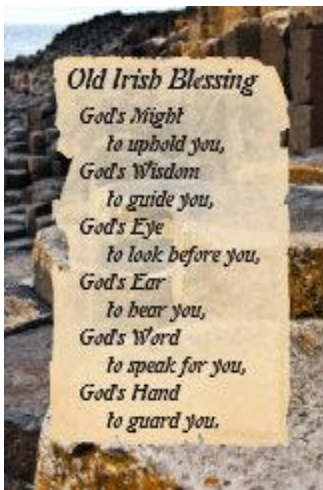 Old Irish Blessing
God's Might
to uphold you,
God's Wisdom
to guide you,
God's Eye
to look before you,
God's Ear
to hear you,
God's Word
to speak for you,
God's Hand
to guard you.